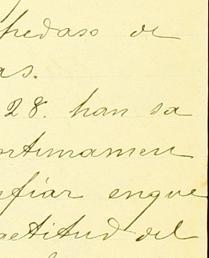 pedaso de
as.
28. han sa
ortunamen
fiar enque
actitud del